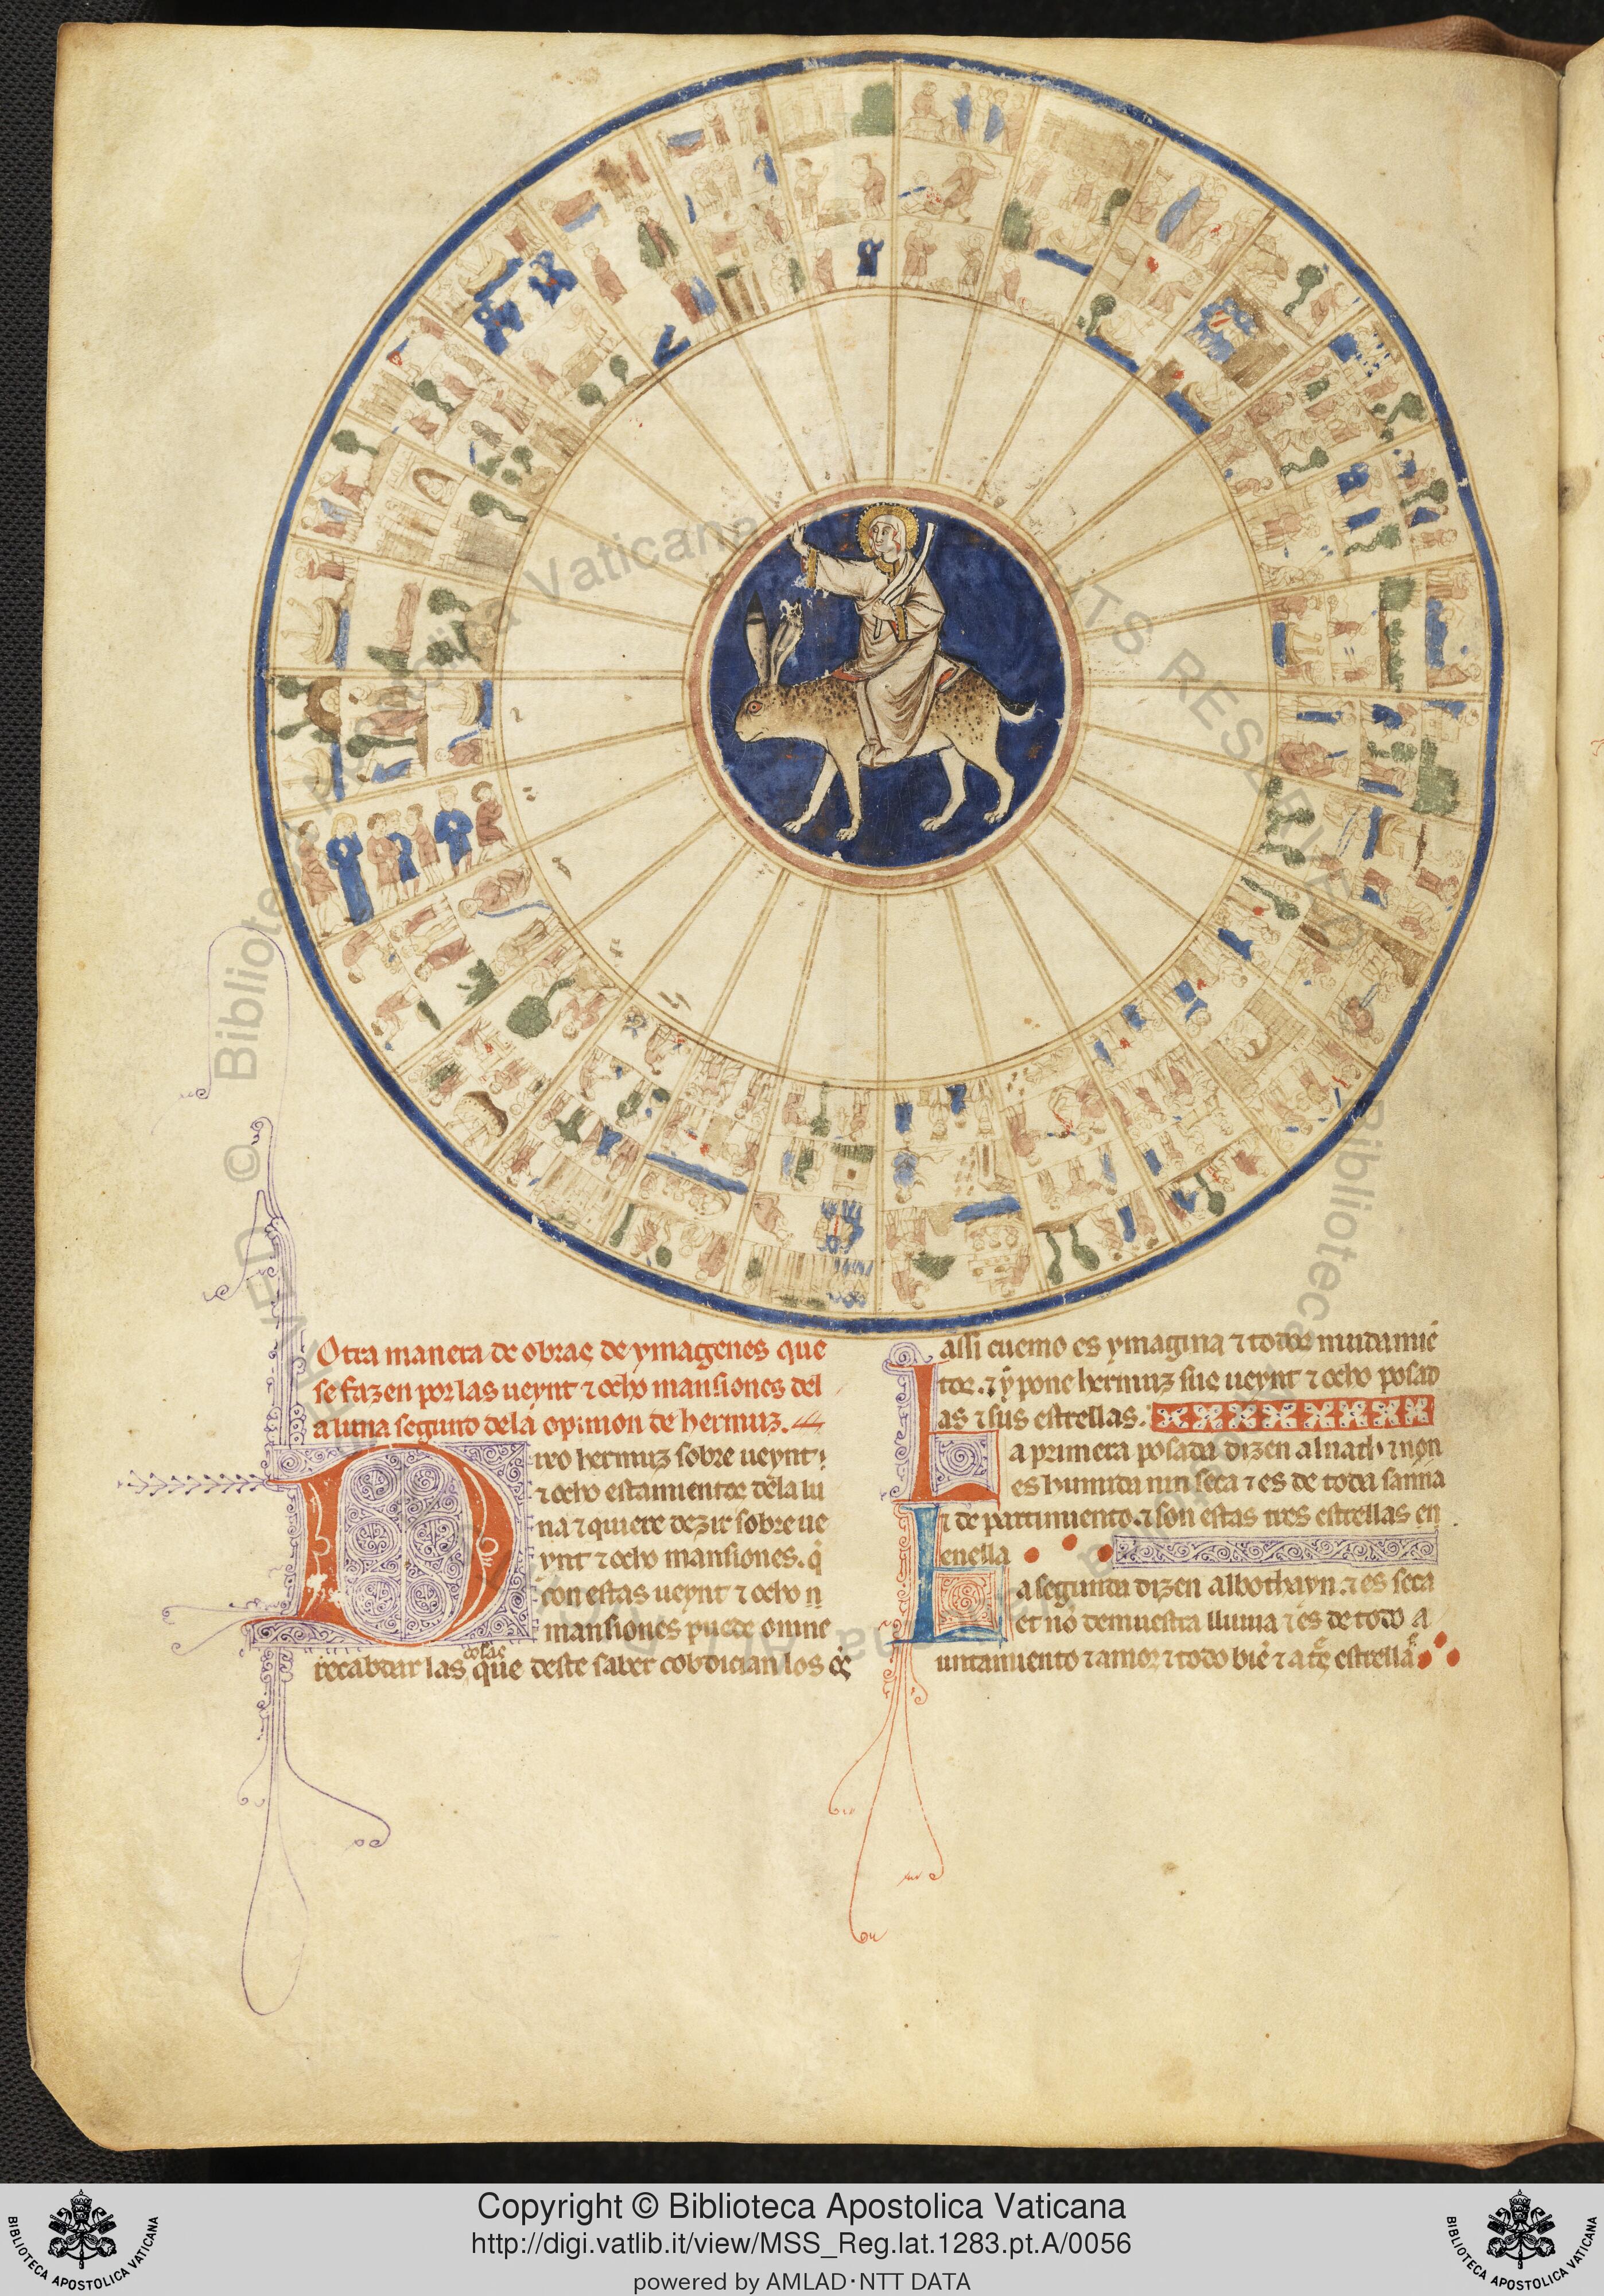 Otra manera de obras de ymagenes que
se fazen por las ueynt ⁊ ocho mansiones del
a luna segund dela opinion de hermuz.
Dixo hermuz sobre ueynt
⁊ ocho estamientos dela lu
na ⁊ quiere dezir sobre ue
ynt ⁊ ocho mansiones. q̇
con estas ueynt ⁊ ocho
mansiones puede omne
recabdar las cosas que deste saber cobdician los
assi cuemo es ymagina ⁊ todos mudamiẽ
tos. ⁊ ẏ pone hermuz sus ueynt ⁊ ocho posad
as ⁊ sus estrellas.
La primera posada dizen alnath ⁊ non
es humida nin seca ⁊ es de toda sanna
⁊ de partimiento. ⁊ son estas tres estrellas en
enella
La segunda dizen albothayn. ⁊ es seca
et nõ demuestra lluuia ⁊ es de todo a
untamiento ⁊ amor ⁊ todo biẽ ⁊ estrellas
Copyright © Biblioteca Apostolica Vaticana
http://digi.vatlib.it/view/MSS_Reg.lat.1283.pt.A/0056
powered by AMLAD·NTT DATA
BIBLIOTECA APOSTOLICA VATICANA
BIBLIOTECA APOSTOLICA VATICANA